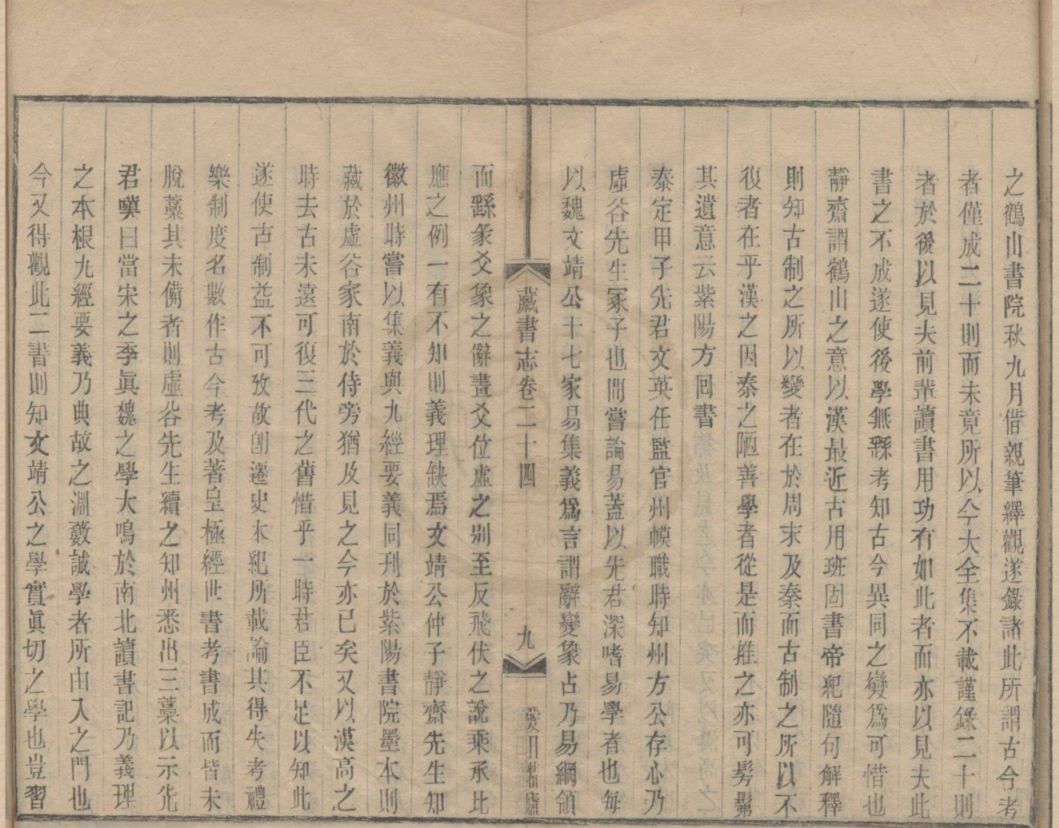 之鶴山書院秋九月借親筆繹觀遂錄諸此所謂古今考
者僅成二十則而未竟所以今大全集不載謹錄二十則
者於後以見夫前輩讀書用功有如此者而亦以見夫此
書之不成遂使後學無繇考知古今異同之變爲可惜也
靜齋謂鶴山之意以漢最近古用班固書帝紀隨句解釋
則知古制之所以變者在於周末及秦而古制之所以不
復者在乎漢之因秦之陋善學者從是而推之亦可髣髴
其遺意云紫陽方回書
泰定甲子先君文英任監官州幙職時知州方公存心乃
虛谷先生冢子也閒嘗論易蓋以先君深嗜易學者也每
以魏文靖公十七家易集義爲言謂辭變象占乃易綱領
藏書志卷二十四
九
愛日精廬
而繇彖爻象之辭畫爻位虛之別至反飛伏之說乘承比
應之例一有不知則義理缺焉文靖公仲子靜齋先生知
徽州時嘗以集義與九經要義同刋於紫陽書院墨本則
藏於虛谷家南於侍旁猶及見之今亦已矣又以漢高之
時去古未遠可復三代之舊惜乎一時君臣不足以知此
遂使古制益不可攷故卽遷史本紀所載論其得失考禮
樂制度名數作古今考及著皇極經世書考書成而皆未
脫藁其未備者則虛谷先生續之知州悉出三藁以示先
君嘆曰當宋之季眞魏之學大鳴於南北讀書記乃義理
之本根九經要義乃典故之淵藪誠學者所由入之門也
今又得觀此二書則知文靖公之學實眞切之學也豈習